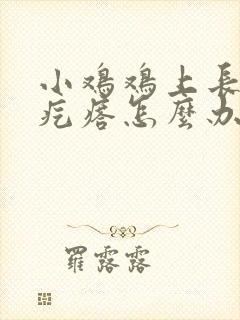 小鸡鸡上長
疙瘩怎麼办
羅露露